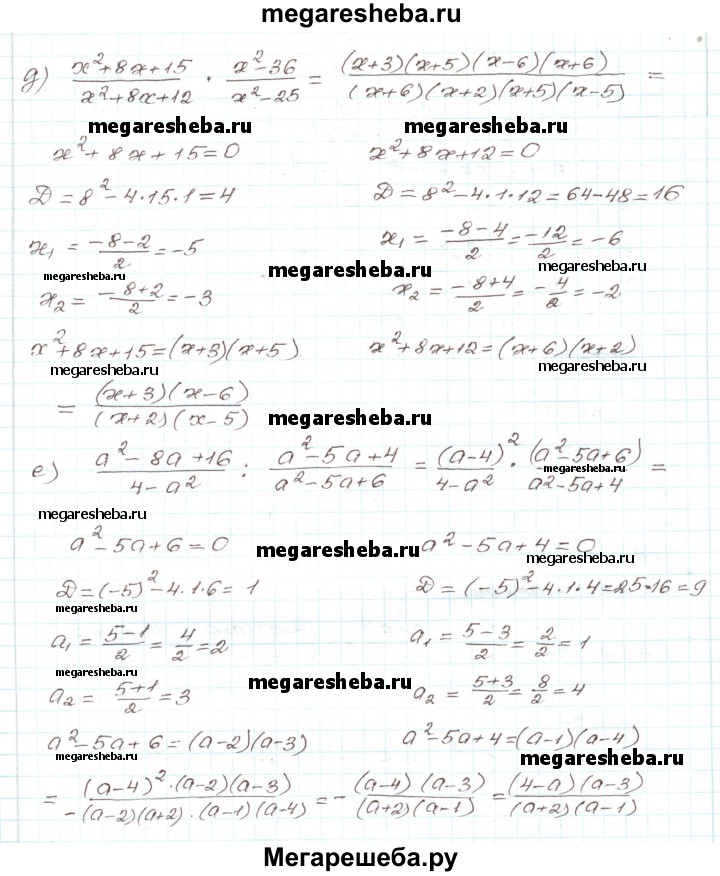 megaresheba.ru
д) (x²+8x+15)/(x²+8x+12) · (x²-36)/(x²-25) = ((x+3)(x+5)(x-6)(x+6))/((x+6)(x+2)(x+5)(x-5)) =
megaresheba.ru megaresheba.ru
x²+8x+15=0 x²+8x+12=0
Д=8²-4·15·1=4 Д=8²-4·1·12=64-48=16
x₁ = (-8-2)/2 = -5 x₁ = (-8-4)/2 = (-12)/2 = -6
megaresheba.ru megaresheba.ru megaresheba.ru
x₂ = (-8+2)/2 = -3 x₂ = (-8+4)/2 = -4/2 = -2
x²+8x+15=(x+3)(x+5) x²+8x+12=(x+6)(x+2)
megaresheba.ru megaresheba.ru
= ((x+3)(x-6))/((x+2)(x-5)) megaresheba.ru
е) (a²-8a+16)/(4-a²) : (a²-5a+4)/(a²-5a+6) = (a-4)²/(4-a²) · (a²-5a+6)/(a²-5a+4) =
megaresheba.ru
megaresheba.ru
a²-5a+6=0 megaresheba.ru a²-5a+4=0
Д=(-5)²-4·1·6=1 Д=(-5)²-4·1·4=25-16=9
megaresheba.ru megaresheba.ru
a₁ = (5-1)/2 = 4/2 = 2 a₁ = (5-3)/2 = 2/2 = 1
megaresheba.ru megaresheba.ru megaresheba.ru
a₂ = (5+1)/2 = 3 a₂ = (5+3)/2 = 8/2 = 4
a²-5a+6=(a-2)(a-3) a²-5a+4=(a-1)(a-4)
megaresheba.ru megaresheba.ru
= ((a-4)²·(a-2)(a-3))/(-(a-2)(a+2)·(a-1)(a-4)) = -((a-4)(a-3))/((a+2)(a-1)) = ((4-a)(a-3))/((a+2)(a-1))
Мегарешеба.ру